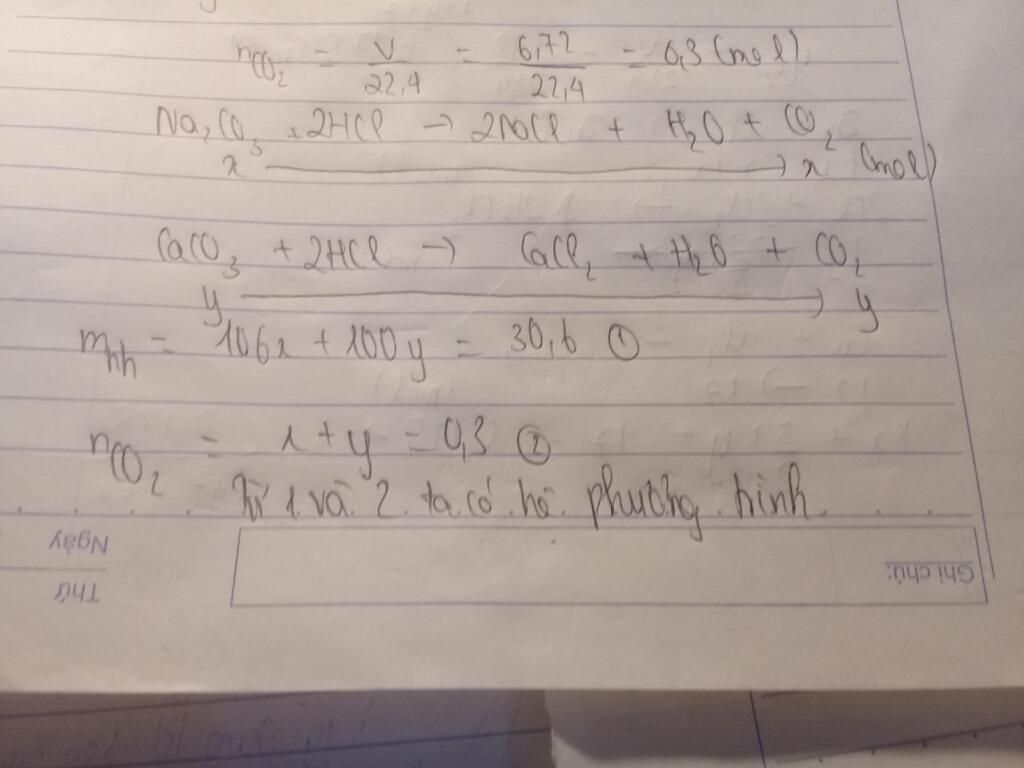 nCO₂ = V/22,4 = 6,72/22,4 = 0,3 (mol)
Na₂CO₃ + 2HCl → 2NaCl + H₂O + CO₂
x → x (mol)
CaCO₃ + 2HCl → CaCl₂ + H₂O + CO₂
y → y
mhh = 106x + 100y = 30,6 ①
nCO₂ = x + y = 0,3 ②
Từ 1 và 2 ta có hệ phương trình
Ngày
Thứ
Ghi chú: